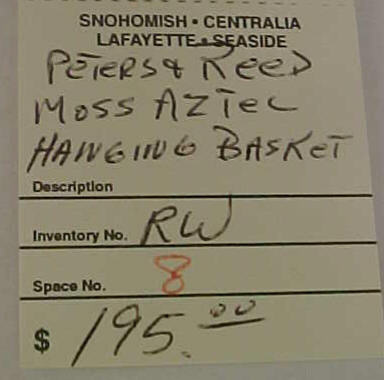 SNOHOMISH • CENTRALIA
LAFAYETTE • SEASIDE
PETERS & REED
MOSS AZTEC
HANGING BASKET
Description
Inventory No. RW
Space No. 8
$ 195.00